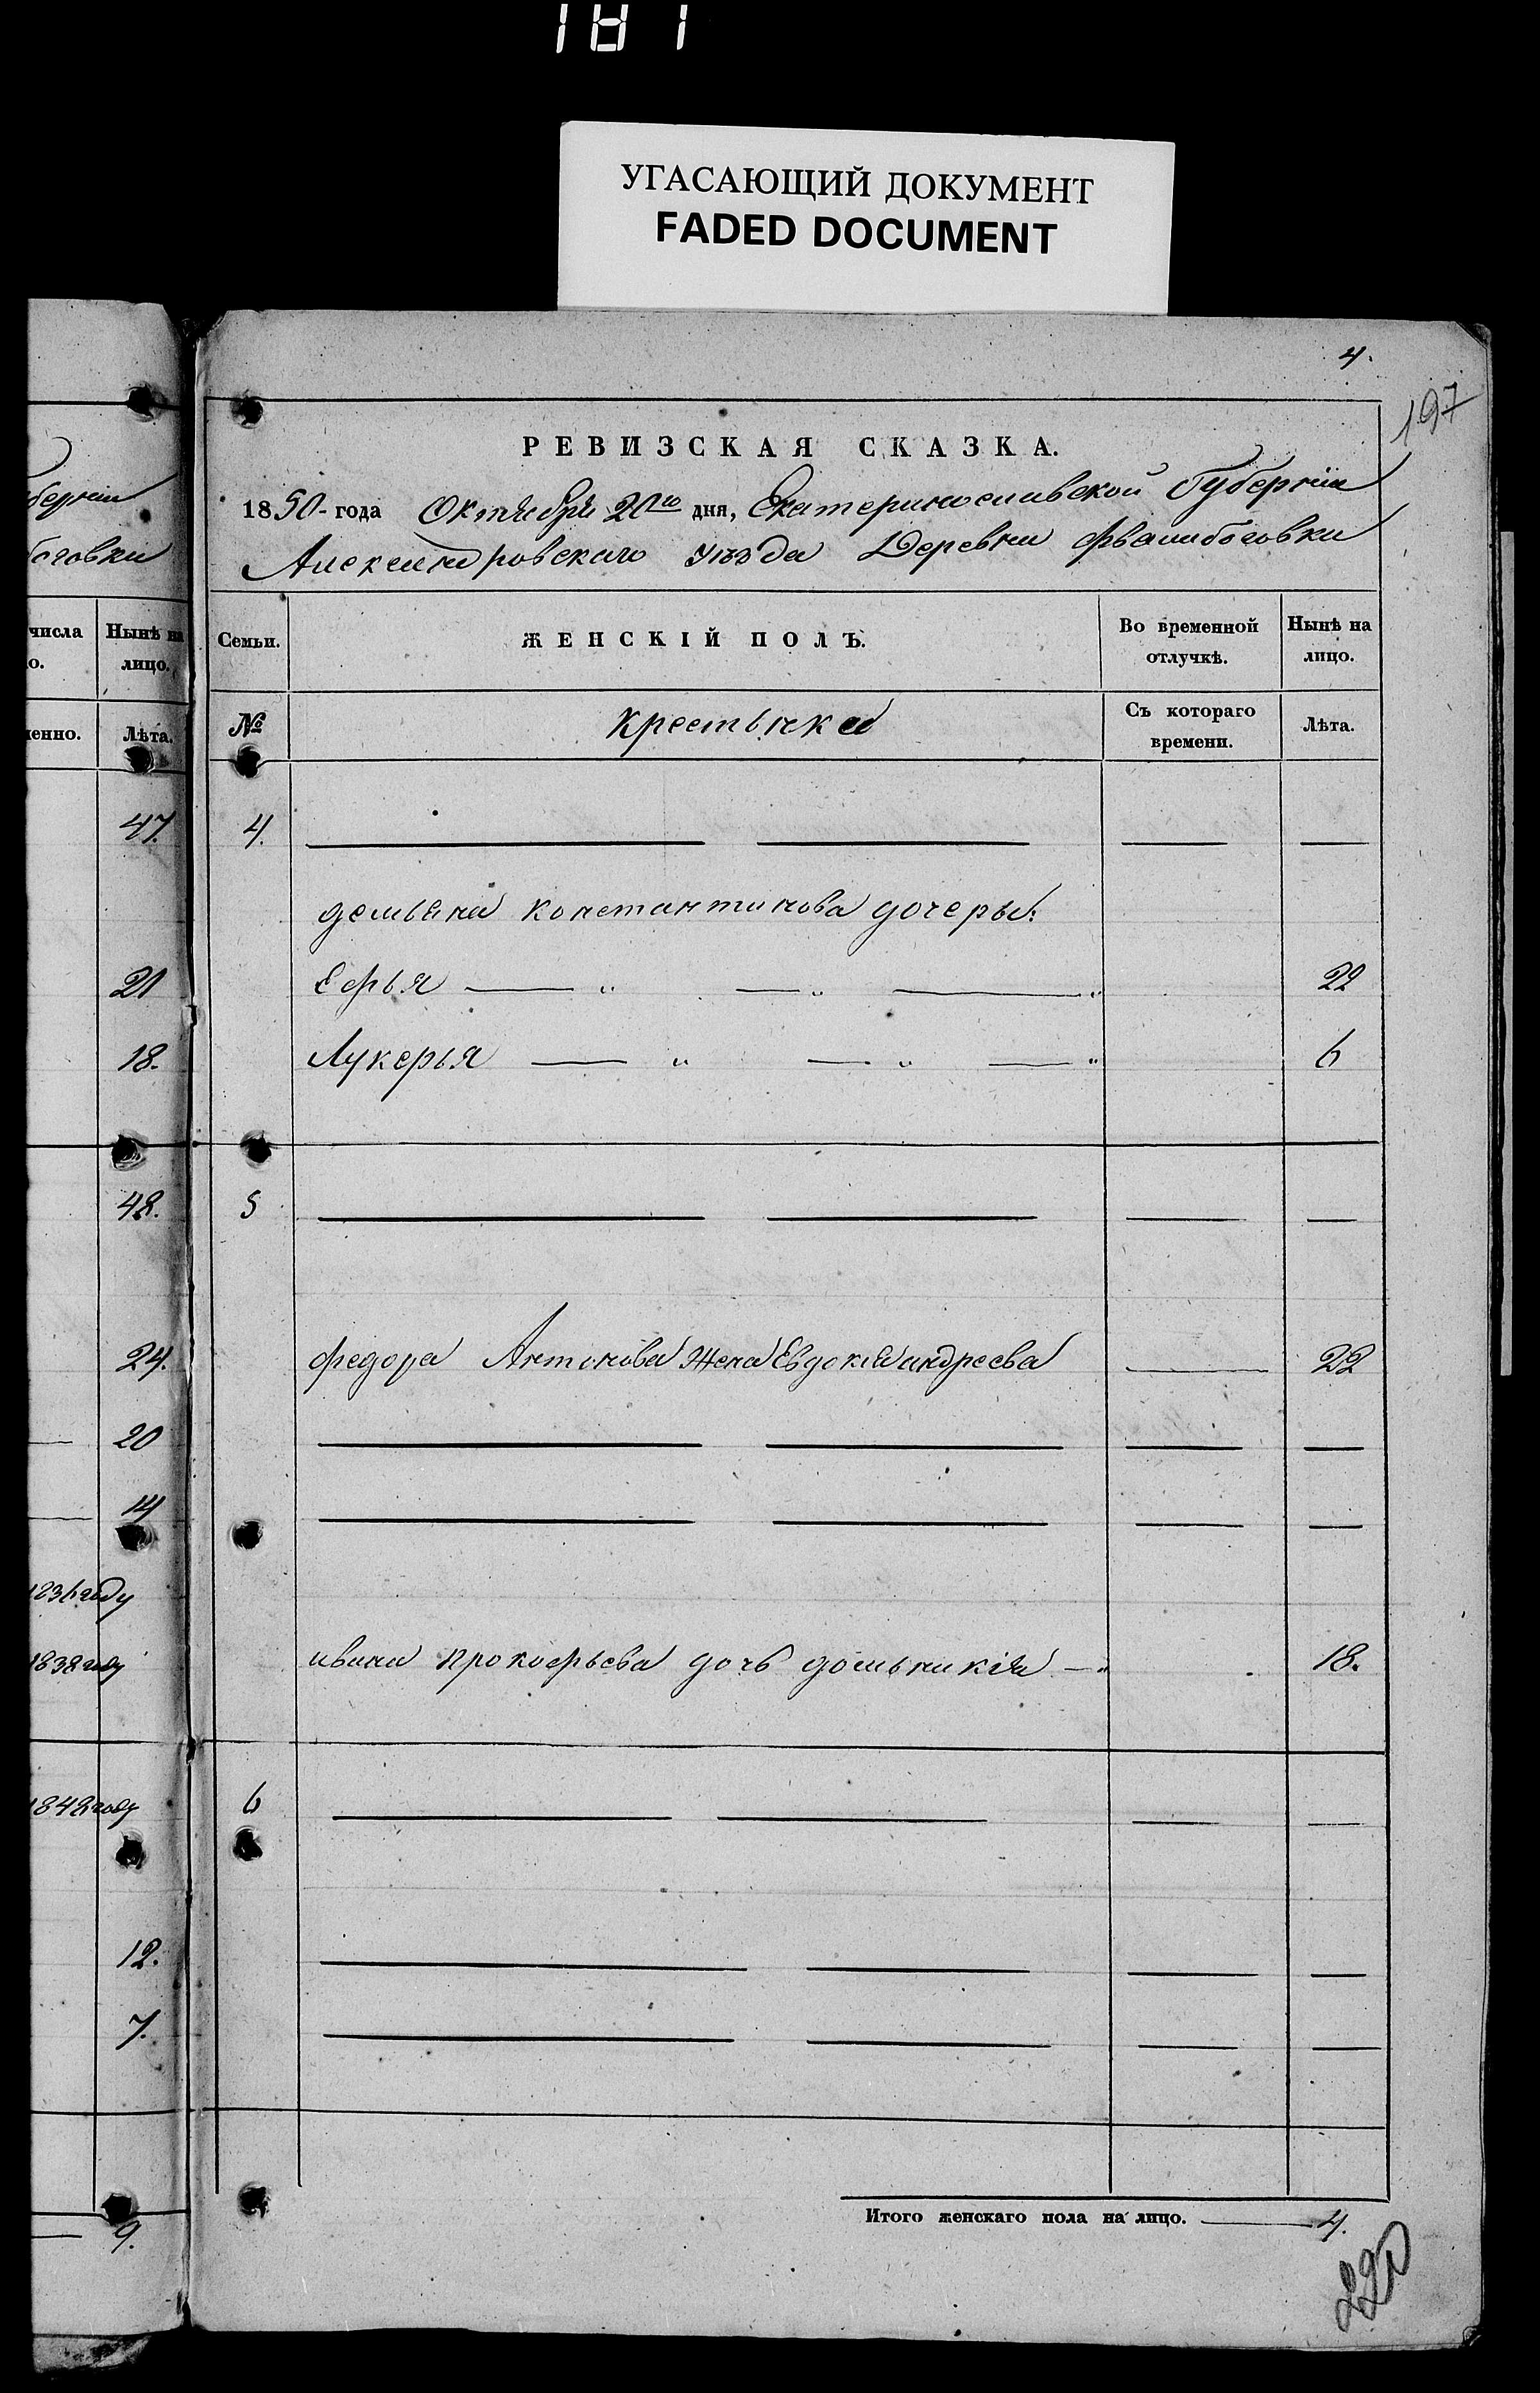 181
УГАСАЮЩИЙ ДОКУМЕНТ
FADED DOCUMENT
4.
197
РЕВИЗСКАЯ СКАЗКА.
1850 года Октября 20го дня, Екатеринославской Губернiи
Александровскаго уѣзда Деревни
берніи
боговки
числа
Нынѣ на
о.
лицо.
Семьи.
ЖЕНСКІЙ ПОЛЪ.
Во временной отлучкѣ.
Нынѣ на лицо.
менно.
Лѣта.
№
Крестьянка
Съ котораго времени.
Лѣта.
47.
4.
Демьяна Константинова дочеры:
21
Ефья — " — " — "
22
18.
Лукерья — " — " — "
6
48.
5
24.
Федора Антонова жена Евдокiя андреева
22
20
14
1836 году
1838 году
ивана Прокофьева дочь домникiя — "
18.
1848 году
6
12.
7.
9.
Итого женскаго пола на лицо. — 4.
220